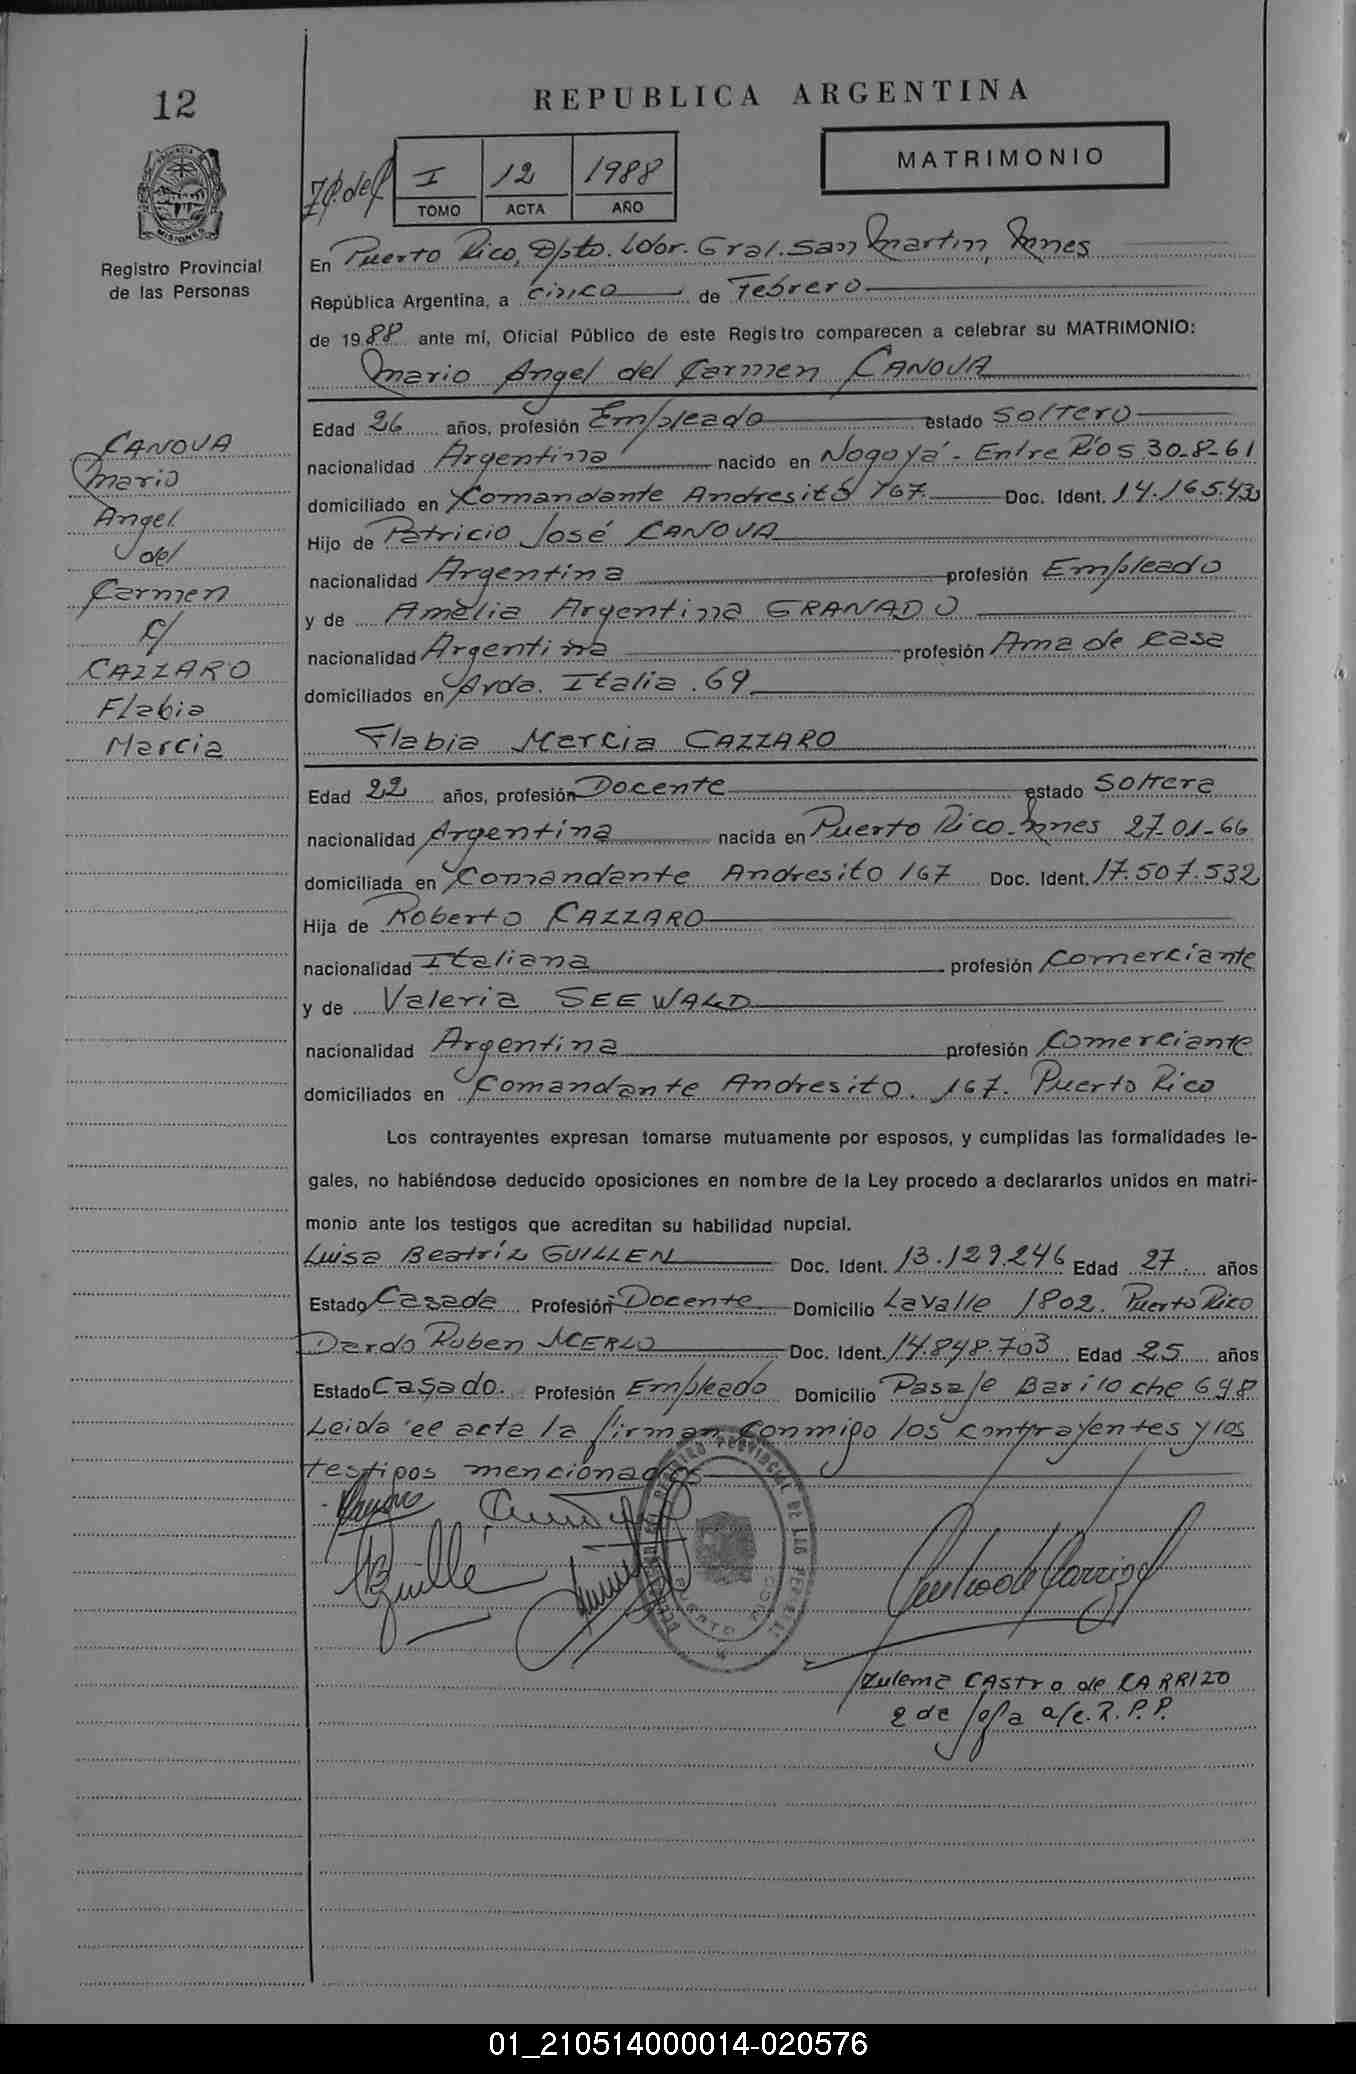 12
REPUBLICA ARGENTINA
MATRIMONIO
I 12 1988
TOMO ACTA AÑO
PROVINCIA DE MISIONES
Registro Provincial
de las Personas
En Puerto Rico, Dpto. Ldor. Gral. San Martin, Mnes
República Argentina, a cinco de Febrero
de 1988 ante mí, Oficial Público de este Registro comparecen a celebrar su MATRIMONIO:
Mario Angel del Carmen CANOVA
Edad 26 años, profesión Empleado estado Soltero
nacionalidad Argentina nacido en Nogoyá - Entre Ríos 30-8-61
domiciliado en Comandante Andresito 167 Doc. Ident. 14.165.430
Hijo de Patricio José CANOVA
nacionalidad Argentina profesión Empleado
y de Amelia Argentina GRANADO
nacionalidad Argentina profesión Ama de casa
domiciliados en Avda. Italia 69
Flabia Marcia CAZZARO
CANOVA
Mario
Angel
del
Carmen
c/
CAZZARO
Flabia
Marcia
Edad 22 años, profesión Docente estado Soltera
nacionalidad Argentina nacida en Puerto Rico-Mnes 27-01-66
domiciliada en Comandante Andresito 167 Doc. Ident. 17.507.532
Hija de Roberto CAZZARO
nacionalidad Italiana profesión Comerciante
y de Valeria SEEWALD
nacionalidad Argentina profesión Comerciante
domiciliados en Comandante Andresito. 167. Puerto Rico
Los contrayentes expresan tomarse mutuamente por esposos, y cumplidas las formalidades le-
gales, no habiéndose deducido oposiciones en nombre de la Ley procedo a declararlos unidos en matri-
monio ante los testigos que acreditan su habilidad nupcial.
Luisa Beatríz GUILLEN Doc. Ident. 13.129.246 Edad 27 años
Estado Casada Profesión Docente Domicilio Lavalle 1802. Puerto Rico
Dardo Ruben MERLO Doc. Ident. 14.848.703 Edad 25 años
Estado Casado. Profesión Empleado Domicilio Pasaje Bariloche 698
Leida el acta la firman conmigo los contrayentes y los
testigos mencionados
PUERTO RICO
Zulema CASTRO de CARRIZO
2 de Jefa a/c. R.P.P.
01_210514000014-020576